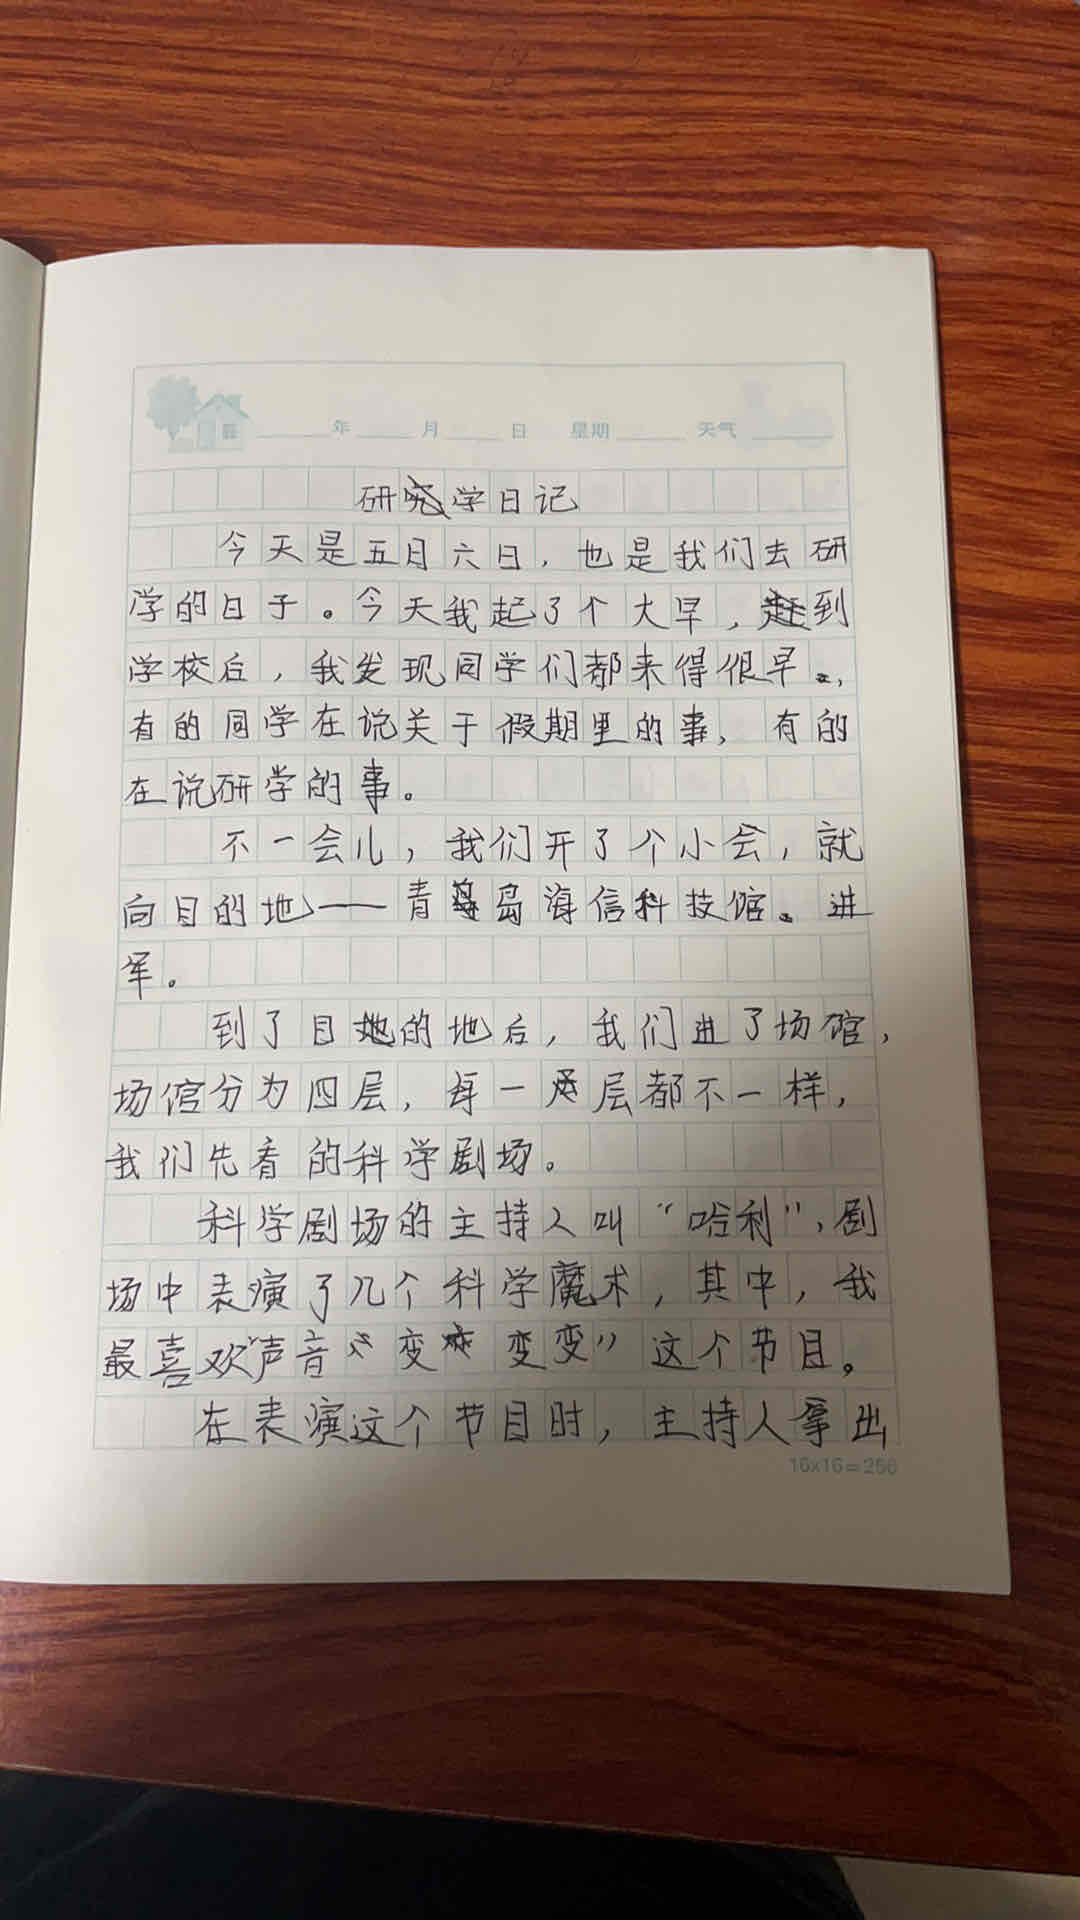 年 月 日 星期 天气
研学日记
今天是五月六日，也是我们去研
学的日子。今天我起了个大早，到
学校后，我发现同学们都来得很早，
有的同学在说关于假期里的事，有的
在说研学的事。
不一会儿，我们开了个小会，就
向目的地——青岛海信科技馆。进
军。
到了目的地后，我们进了场馆，
场馆分为四层，每一层都不一样，
我们先看的科学剧场。
科学剧场的主持人叫“哈利”，剧
场中表演了几个科学魔术，其中，我
最喜欢“声音变变变”这个节目。
在表演这个节目时，主持人拿出
16x16=256